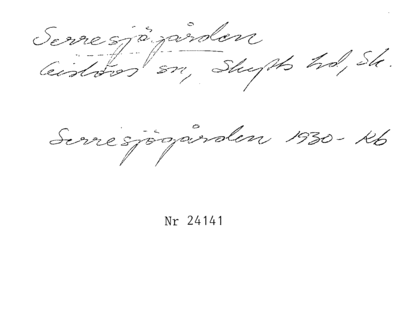 Serresjögården
Gislövs sn, Skytts hd, Sk.
Serresjögården 1930- Kb
Nr 24141